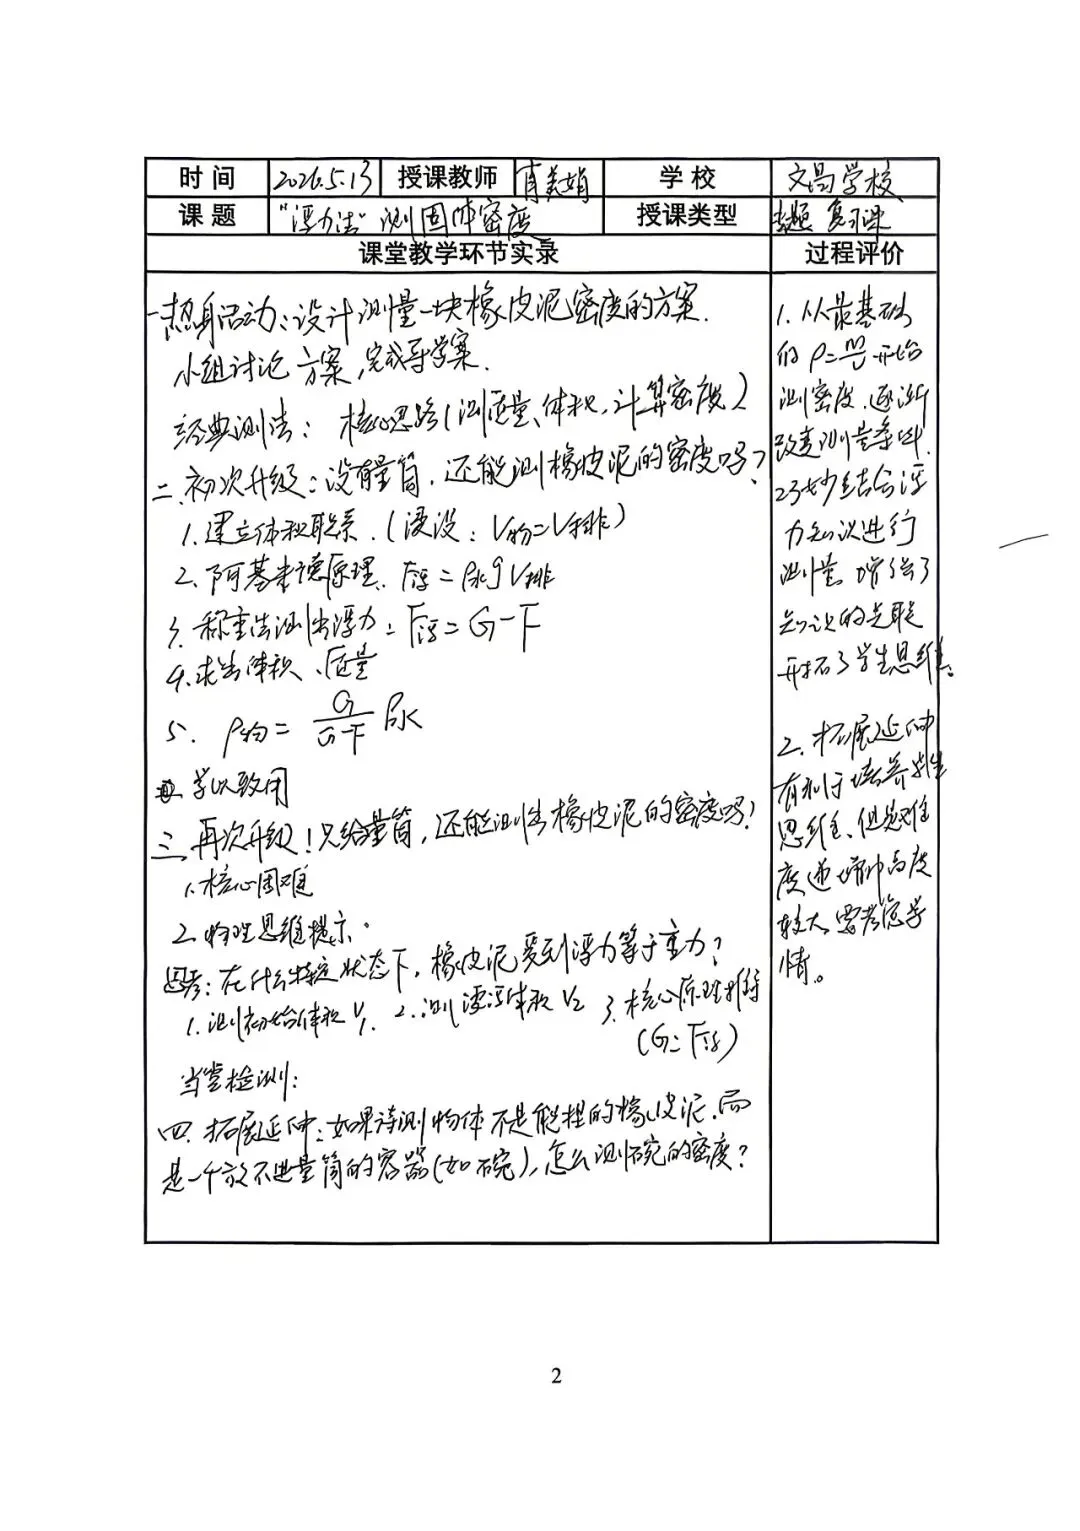 时间 2026.5.13 授课教师 肖美娟 学校 文昌学校
课题 "浮力法"测固体密度 授课类型 专题复习课
课堂教学环节实录 过程评价
一.热身活动:设计测量一块橡皮泥密度的方案.
小组讨论方案,完成导学案.
经典测法:核心思路(测质量、体积,计算密度)
二.初次升级:没有量筒,还能测橡皮泥的密度吗?
1.建立体积联系.(浸没:V物=V排)
2.阿基米德原理.F浮=ρ水gV排
3.称重法测出浮力:F浮=G-F
4.求出体积、质量
5. ρ物= G/G-F ρ水
学以致用
三.再次升级!只给量筒,还能测出橡皮泥的密度吗?
1.核心困难
2.物理思维提示.
思考:在什么特定状态下,橡皮泥受到浮力等于重力?
1.测初始体积V1. 2.测漂浮体积V2 3.核心原理推导
(G=F浮)
当堂检测:
四.拓展延伸:如果待测物体不是能捏的橡皮泥.而
是一个放不进量筒的容器(如碗),怎么测碗的密度?
1.从最基础
的ρ=m/v开始
测密度.逐渐
改变测量条件.
巧妙结合浮
力知识进行
测量,增强了
知识的关联
开拓了学生思维。
2.拓展延伸
有利于培养学生
思维、但题难
度递增冲高度
较大,需考虑学
情。
2